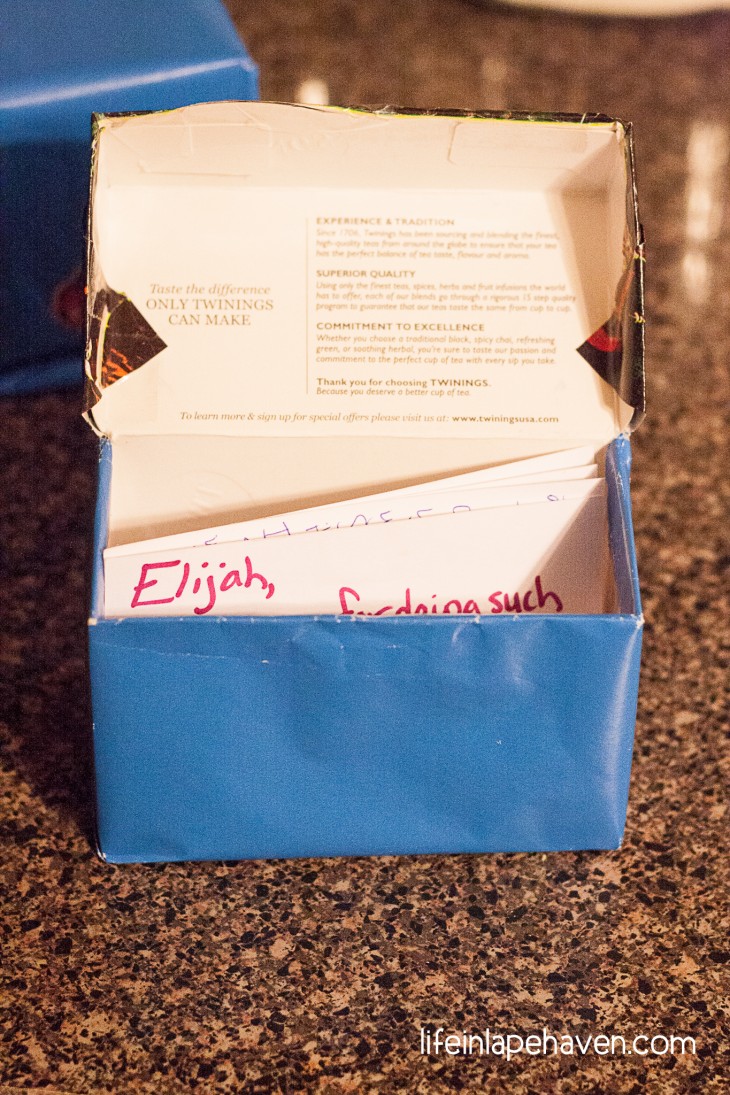 EXPERIENCE & TRADITION
Since 1706, Twinings has been sourcing and blending the finest,
high-quality teas from around the globe to ensure that your tea
has the perfect balance of tea taste, flavour and aroma.
SUPERIOR QUALITY
Using only the finest teas, spices, herbs and fruit infusions the world
has to offer, each of our blends go through a rigorous 15 step quality
program to guarantee that our teas taste the same from cup to cup.
Taste the difference
ONLY TWININGS
CAN MAKE
COMMITMENT TO EXCELLENCE
Whether you choose a traditional black, spicy chai, refreshing
green, or soothing herbal, you're sure to taste our passion and
commitment to the perfect cup of tea with every sip you take.
Thank you for choosing TWININGS.
Because you deserve a better cup of tea.
To learn more & sign up for special offers please visit us at: www.twiningsusa.com
Elijah,
for doing such
lifeinlapehaven.com